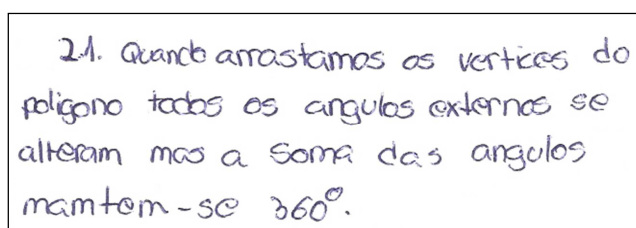 21. Quando arrastamos os vertices do
poligono todos os angulos externos se
alteram mas a soma das angulos
mamtem-se 360º.